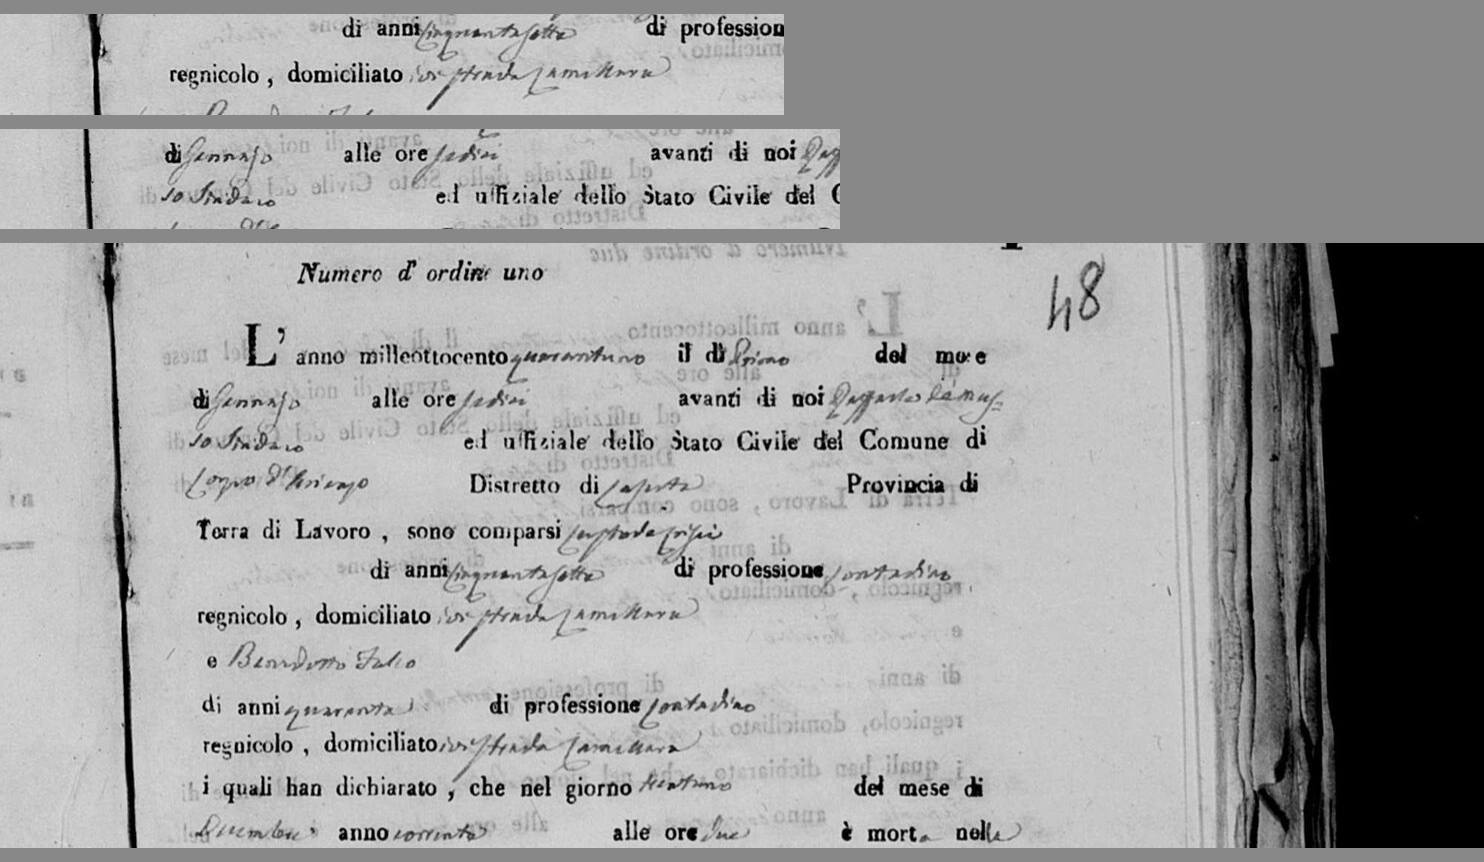 di anni cinquantasette di profession
regnicolo, domiciliato ivi strada
di Gennajo alle ore sedici avanti di noi
so Sindaco ed uffiziale dello Stato Civile del C
Numero d'ordine uno
48
L'anno milleottocento quarantuno il dì Primo del mese
di Gennajo alle ore sedici avanti di noi
so Sindaco ed uffiziale dello Stato Civile del Comune di
d'Arienzo Distretto di Caserta Provincia di
Terra di Lavoro, sono comparsi
di anni cinquantasette di professione contadino
regnicolo, domiciliato ivi strada
e Benedetto
di anni quaranta di professione contadino
regnicolo, domiciliato ivi strada
i quali han dichiarato, che nel giorno trentuno del mese di
Dicembre anno corrente alle ore due è morta nella